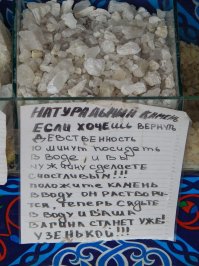 НАТУРАЛЬНЫЙ КАМЕНЬ
ЕСЛИ ХОЧЕШЬ ВЕРНУТЬ
ДЕВСТВЕННОСТЬ
10 МИНУТ ПОСИДЕТЬ
В ВОДЕ, И ВЫ
МУЖЧИНУ СДЕЛАЕТЕ
СЧАСТЛИВЫМ!!!
ПОЛОЖИТЕ КАМЕНЬ
В ВОДУ ОН РАСТВОРИ-
ТСЯ, ТЕПЕРЬ СЯДЬТЕ
В ВОДУ И ВАША
ВАГИНА СТАНЕТ УЖЕ!
УЗЕНЬКОЙ!!!